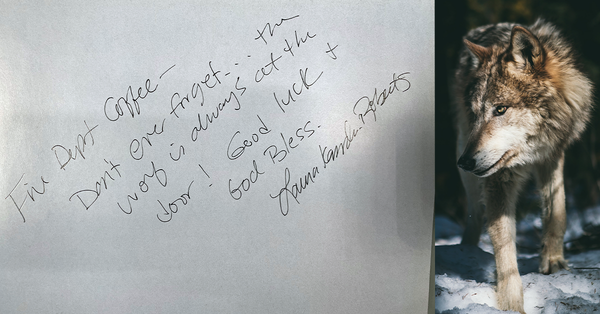 Fire Dept Coffee—
Don't ever forget... the
wolf is always at the
door! Good luck +
God Bless.